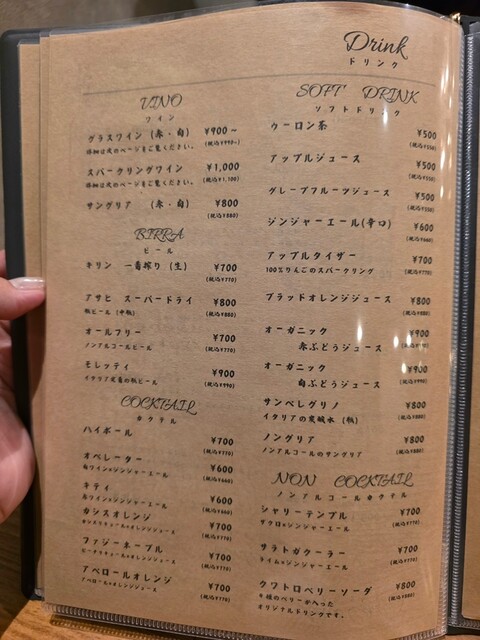 Drink
ドリンク
VINO
ワイン
グラスワイン (赤・白) ¥900～
詳細は次のページをご覧ください。 (税込¥990~)
スパークリングワイン ¥1,000
詳細は次のページをご覧ください。 (税込¥1,100)
サングリア (赤・白) ¥800
(税込¥880)
BIRRA
ビール
キリン 一番搾り (生) ¥700
(税込¥770)
アサヒ スーパードライ ¥800
瓶ビール (中瓶) (税込¥880)
オールフリー ¥700
ノンアルコールビール (税込¥770)
モレッティ ¥900
イタリア定番の瓶ビール (税込¥990)
COCKTAIL
カクテル
ハイボール ¥700
(税込¥770)
オペレーター ¥600
白ワイン×ジンジャーエール (税込¥660)
キティ ¥600
赤ワイン×ジンジャーエール (税込¥660)
カシスオレンジ ¥700
カシスリキュール×オレンジジュース (税込¥770)
ファジーネーブル ¥700
ピーチリキュール×オレンジジュース (税込¥770)
アペロールオレンジ ¥700
アペロール×オレンジジュース (税込¥770)
SOFT DRINK
ソフトドリンク
ウーロン茶 ¥500
(税込¥550)
アップルジュース ¥500
(税込¥550)
グレープフルーツジュース ¥500
(税込¥550)
ジンジャーエール(辛口) ¥600
(税込¥660)
アップルタイザー ¥700
100%りんごのスパークリング (税込¥770)
ブラッドオレンジジュース ¥800
(税込¥880)
オーガニック ¥900
赤ぶどうジュース
オーガニック ¥900
白ぶどうジュース
サンペレグリノ ¥800
イタリアの炭酸水 (瓶) (税込¥880)
ノングリア ¥800
ノンアルコールのサングリア (税込¥880)
NON COCKTAIL
ノンアルコールカクテル
シャリーテンプル ¥700
ザクロ×ジンジャーエール (税込¥770)
サラトガクーラー ¥700
ライム×ジンジャーエール (税込¥770)
クワトロベリーソーダ ¥800
4種のベリーが入った (税込¥880)
オリジナルドリンクです。